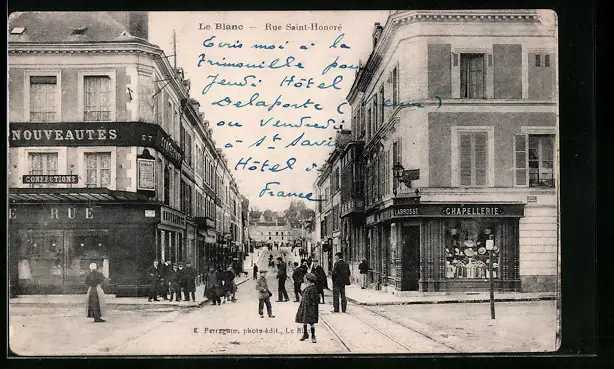 Le Blanc — Rue Saint-Honoré
Ecris moi à la
Trimouille pour
Jeudi Hôtel
Delaporte
ou Vendredi
à St Savin
Hôtel de
France
NOUVEAUTÉS ET
CONFECTIONS
RUE
LABROSSE
CHAPELLERIE
photo-édit., Le Blanc